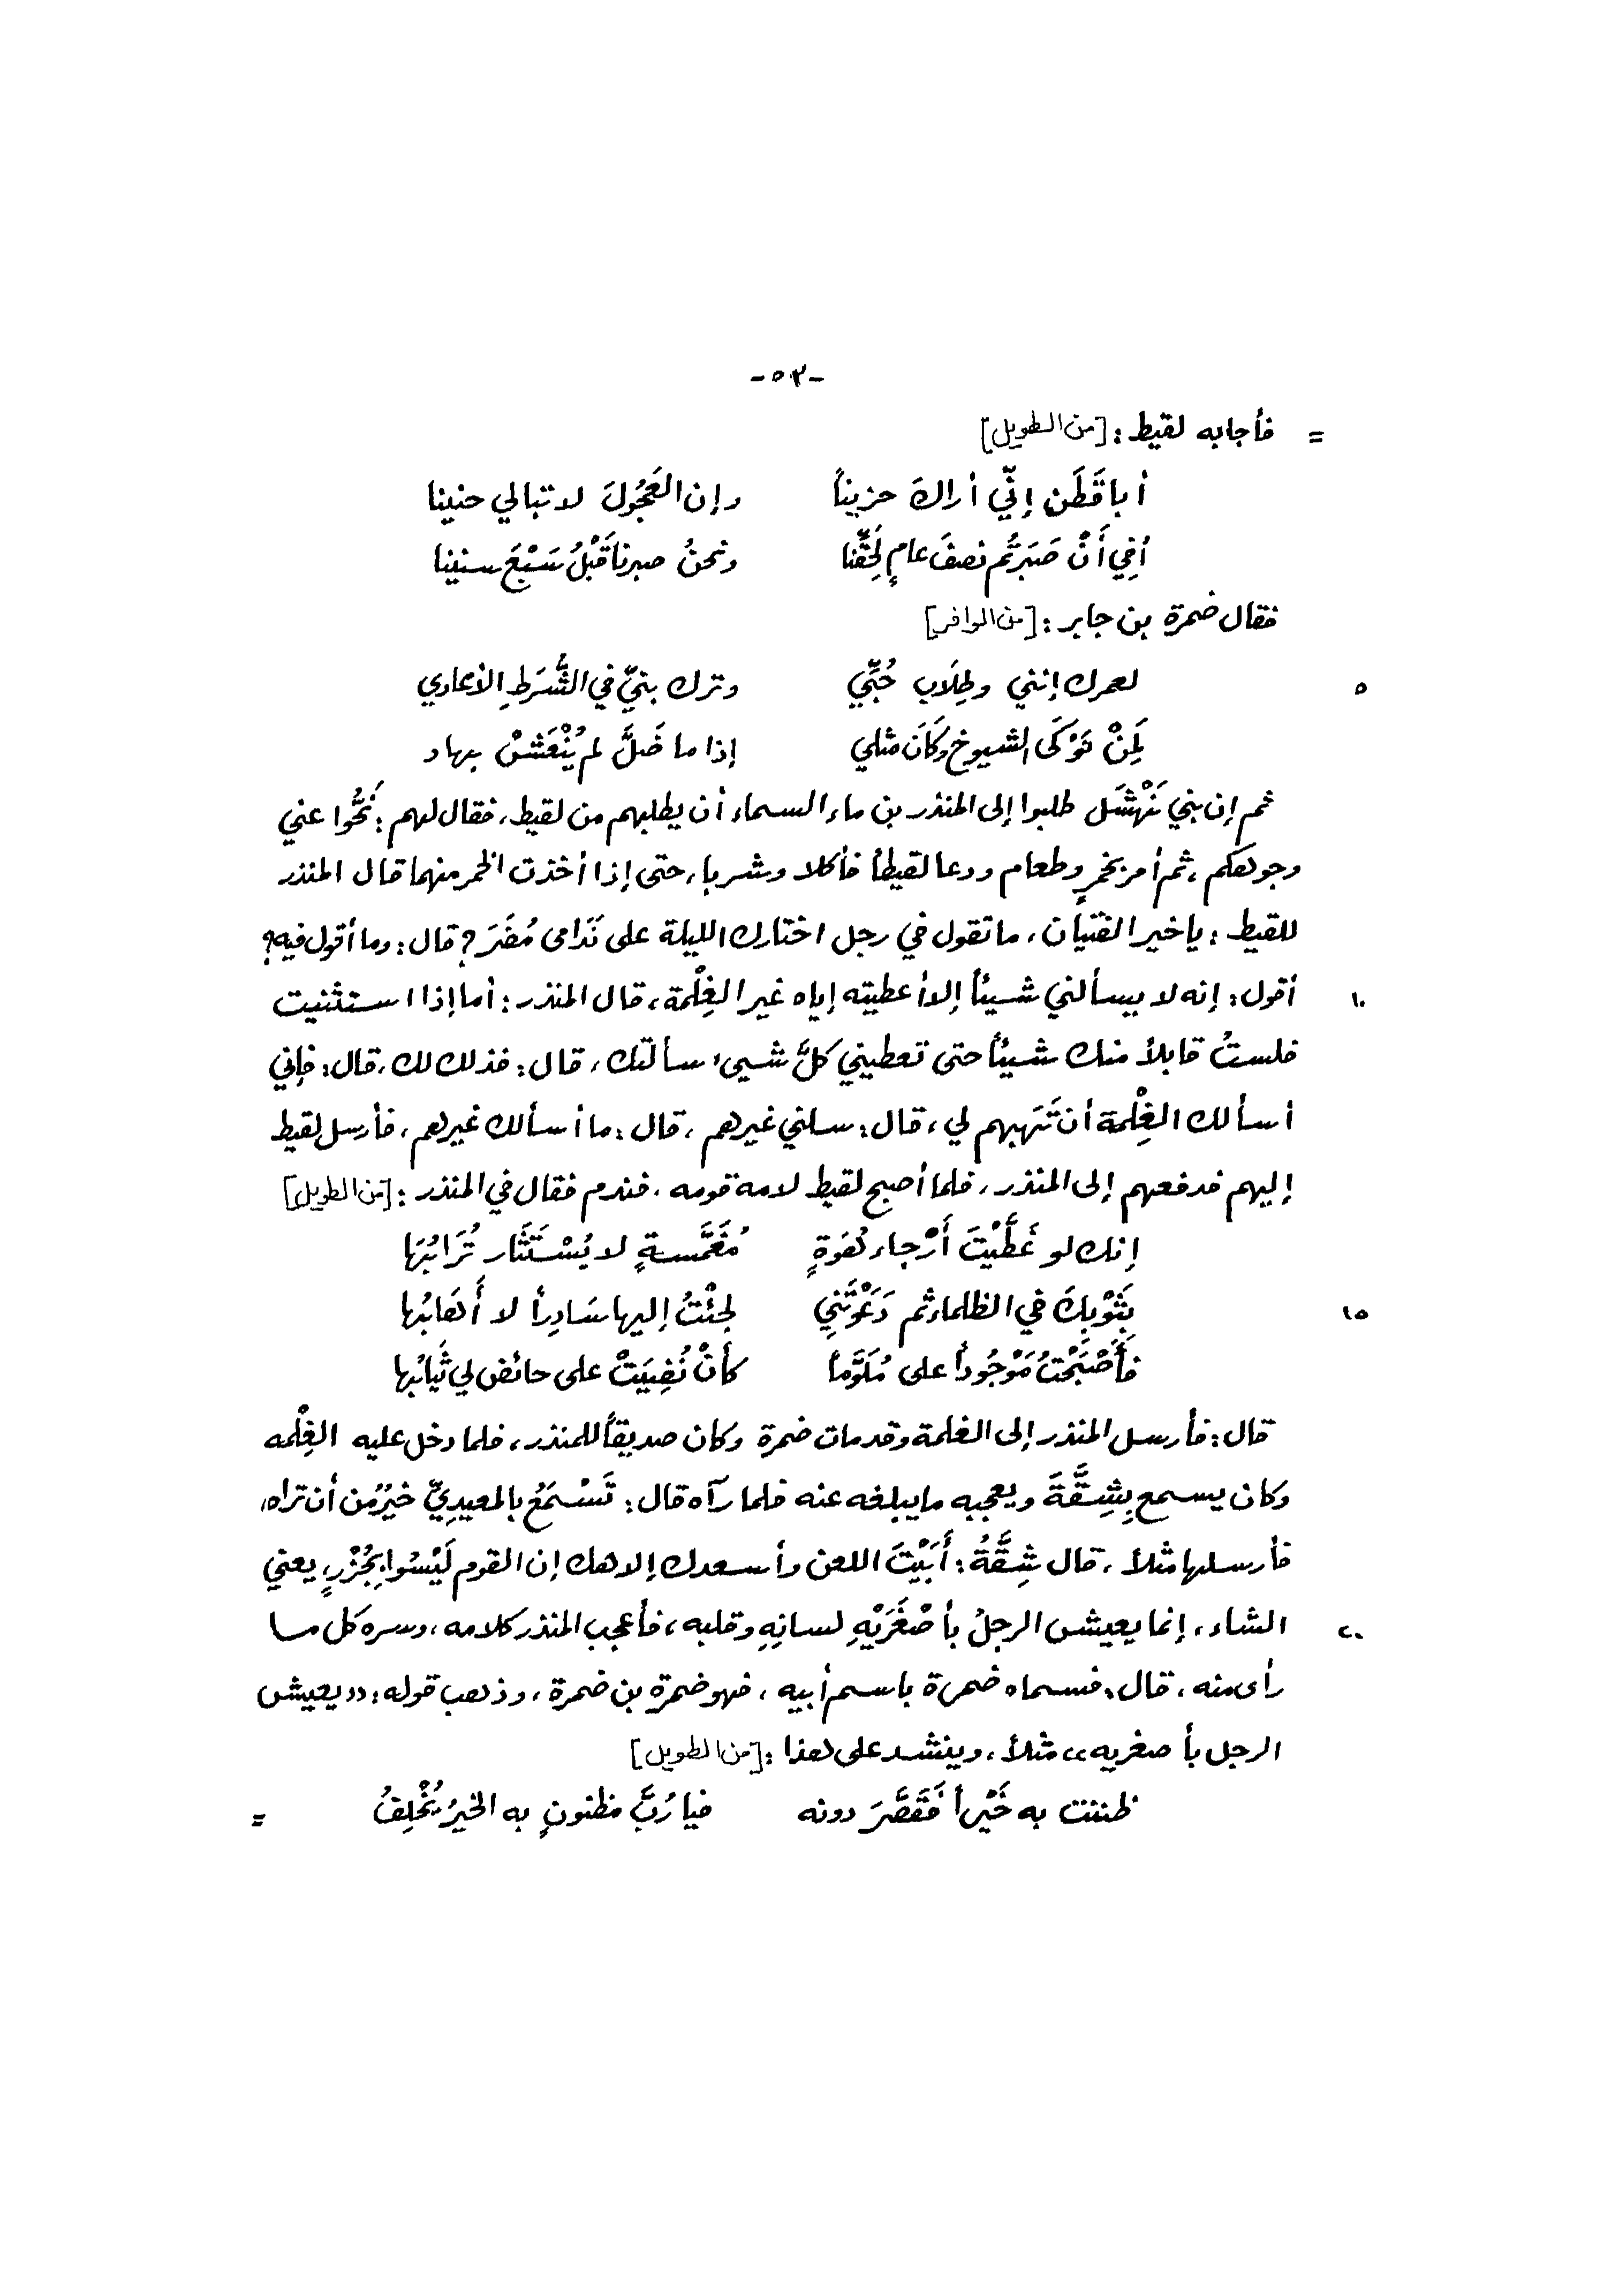 -٥٢-
= فأجابه لقيط: [من الطويل]
أبا قَطَنٍ إنّي أراكَ حزيناً وإن العَجُولَ لا تبالي حنينا
أفِي أَنْ صَبَرتُم نصفَ عامٍ لِحَقِّنا ونحنُ صبرنا قَبْلُ سَبْعَ سنينا
فقال ضمرة بن جابر: [من الوافر]
٥ لعمرك إنني وطِلَاب حُبِّي وترك بنيَّ في الشُّرَطِ الأعادي
لَمِنْ نَوْكَى الشيوخ وكَانَ مثلي إذا ما ضَلَّ لم يُنْعَشْ بهاد
ثم إن بني نَهْشَل طلبوا إلى المنذر بن ماء السماء أن يطلبهم من لقيط، فقال لهم: نَحُّوا عني
وجوهكم، ثم أمر بخمرٍ وطعام ودعا لقيطاً فأكلا وشربا، حتى إذا أخذت الخمر منهما قال المنذر
للقيط: يا خير الفتيان، ما تقول في رجل اختارك الليلة على نَدَامى مُضَرَ؟ قال: وما أقول فيه؟
١٠ أقول: إنه لا يسألني شيئاً إلا أعطيته إياه غير الغِلْمة، قال المنذر: أما إذا استثنيت
فلستُ قابلاً منك شيئاً حتى تعطيني كلَّ شيىء سألتك، قال: فذلك لك، قال: فإني
أسألك الغِلْمة أن تَهَبهم لي، قال: سلني غيرهم، قال: ما أسألك غيرهم، فأرسل لقيط
إليهم فدفعهم إلى المنذر، فلما أصبح لقيط لامه قومه، فندم فقال في المنذر: [من الطويل]
إنك لو غَطَّيْتَ أَرْجاء هُوَةٍ مُغَمَّسةٍ لا يُسْتَثَار تُرَابُهَا
١٥ بِثَوْبِكَ في الظلماء ثم دَعَوْتَنِي لجئْتُ إليها سَادِراً لا أَهَابُها
فأَصْبَحْتُ مَوْجُوداً على مُلَوَّماً كأنْ نُضِيَتْ على حائض لي ثيَابُها
قال: فأرسل المنذر إلى الغلمة وقد مات ضمرة وكان صديقاً للمنذر، فلما دخل عليه الغِلْمه
وكان يسمع بِشِقَّةَ ويعجبه ما يبلغه عنه فلما رآه قال: تَسْمَعُ بالمعيدِيِّ خيرٌ من أن تراه،
فأرسلها مثلاً، قال شِقَّةُ: أَبَيْتَ اللعن وأسعدك إلا هك إن القوم لَيْسُوا بِجُزْرٍ، يعني
٢٠ الشاء، إنما يعيش الرجلُ بأصْغَرَيْهِ لسانِهِ وقلبه، فأعجب المنذر كلامه، وسره كل مــا
رأى منه، قال: فسماه ضمرة باسم أبيه، فهو ضمرة بن ضمرة، وذهب قوله: «يعيش
الرجل بأصغريه» مثلاً، وينشد على هذا: [من الطويل]
ظننت به خَيْراً فَقَصَّرَ دونه فيا رُبَّ مظنونٍ به الخيرُ يُخْلِفُ =